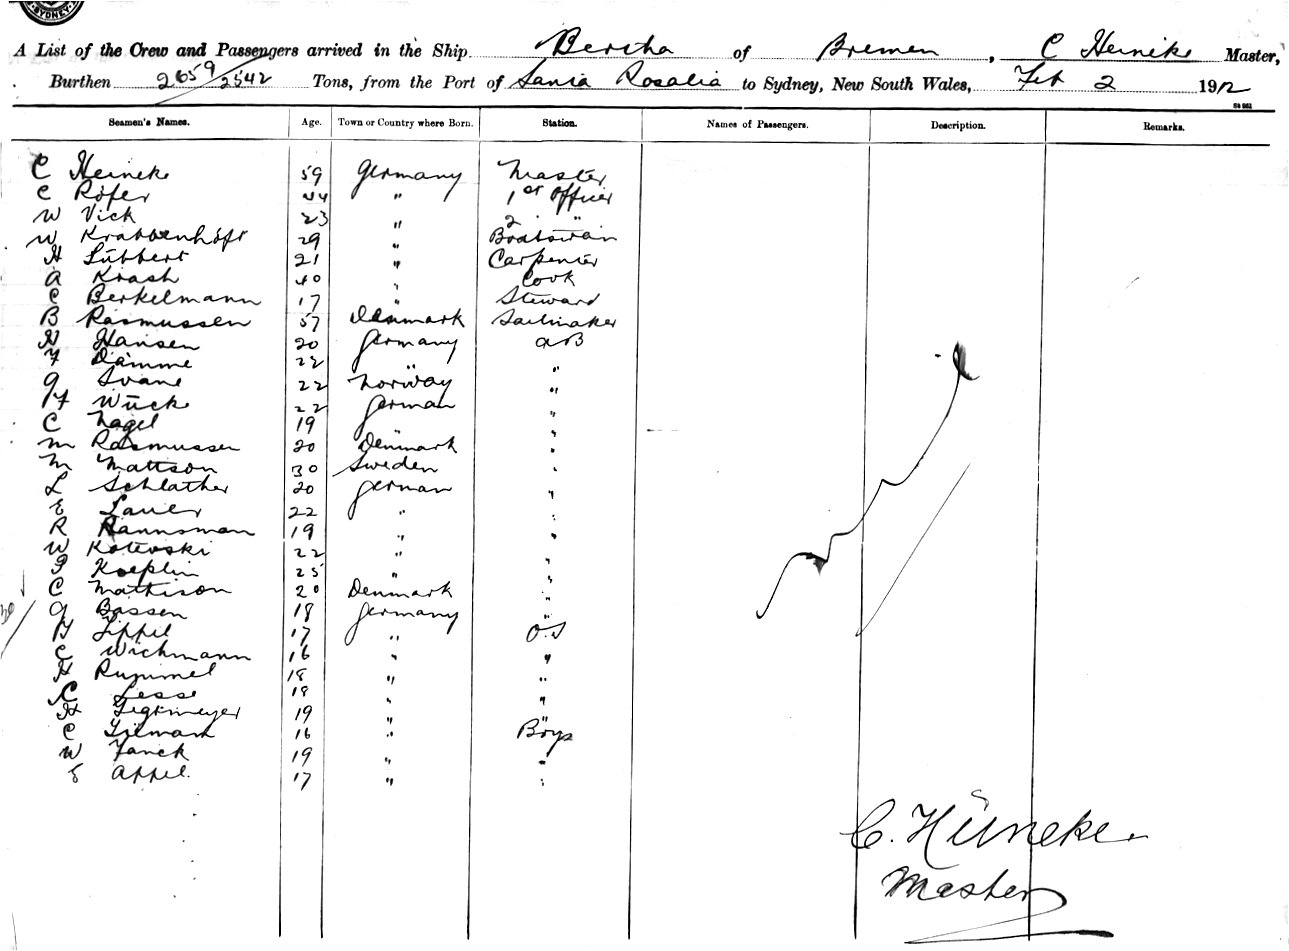 SYDNEY
A List of the Crew and Passengers arrived in the Ship Bertha of Bremen, C Heineke Master,
Burthen 2659/2542 Tons, from the Port of Santa Rosalia to Sydney, New South Wales, Feb 2 1912
Seamen's Names. Age. Town or Country where Born. Station. Names of Passengers. Description. Remarks.
C Heineke 59 Germany Master
C Röfer 44 " 1st Officer
W Vick 23 " 2 " "
W Krabbenhöft 29 " Boatswain
H Lübbert 21 " Carpenter
A Krash 40 " Cook
C Berkelmann 17 " Steward
B Rasmussen 57 Denmark Sailmaker
H Hansen 20 Germany AB
F Damme 22 " "
G Svane 22 Norway "
H Wück 22 German "
C Nagel 19 " "
M Rasmussen 20 Denmark "
M Mattson 30 Sweden "
L Schlather 20 German "
E Lauer 22 " "
R Hannsman 19 " "
W Kotevski 22 " "
Koeplin 25 " "
C Mathison 20 Denmark "
G Bassen 18 Germany "
Lippel 17 " O.S
C Wichmann 16 " "
H Rummel 18 " "
C Lesse 18 " "
H Legtmeyer 19 " "
C Tilmann 16 " Boys
W Fanck 19 " "
E Appel 17 " "
C. Hüneke
Master